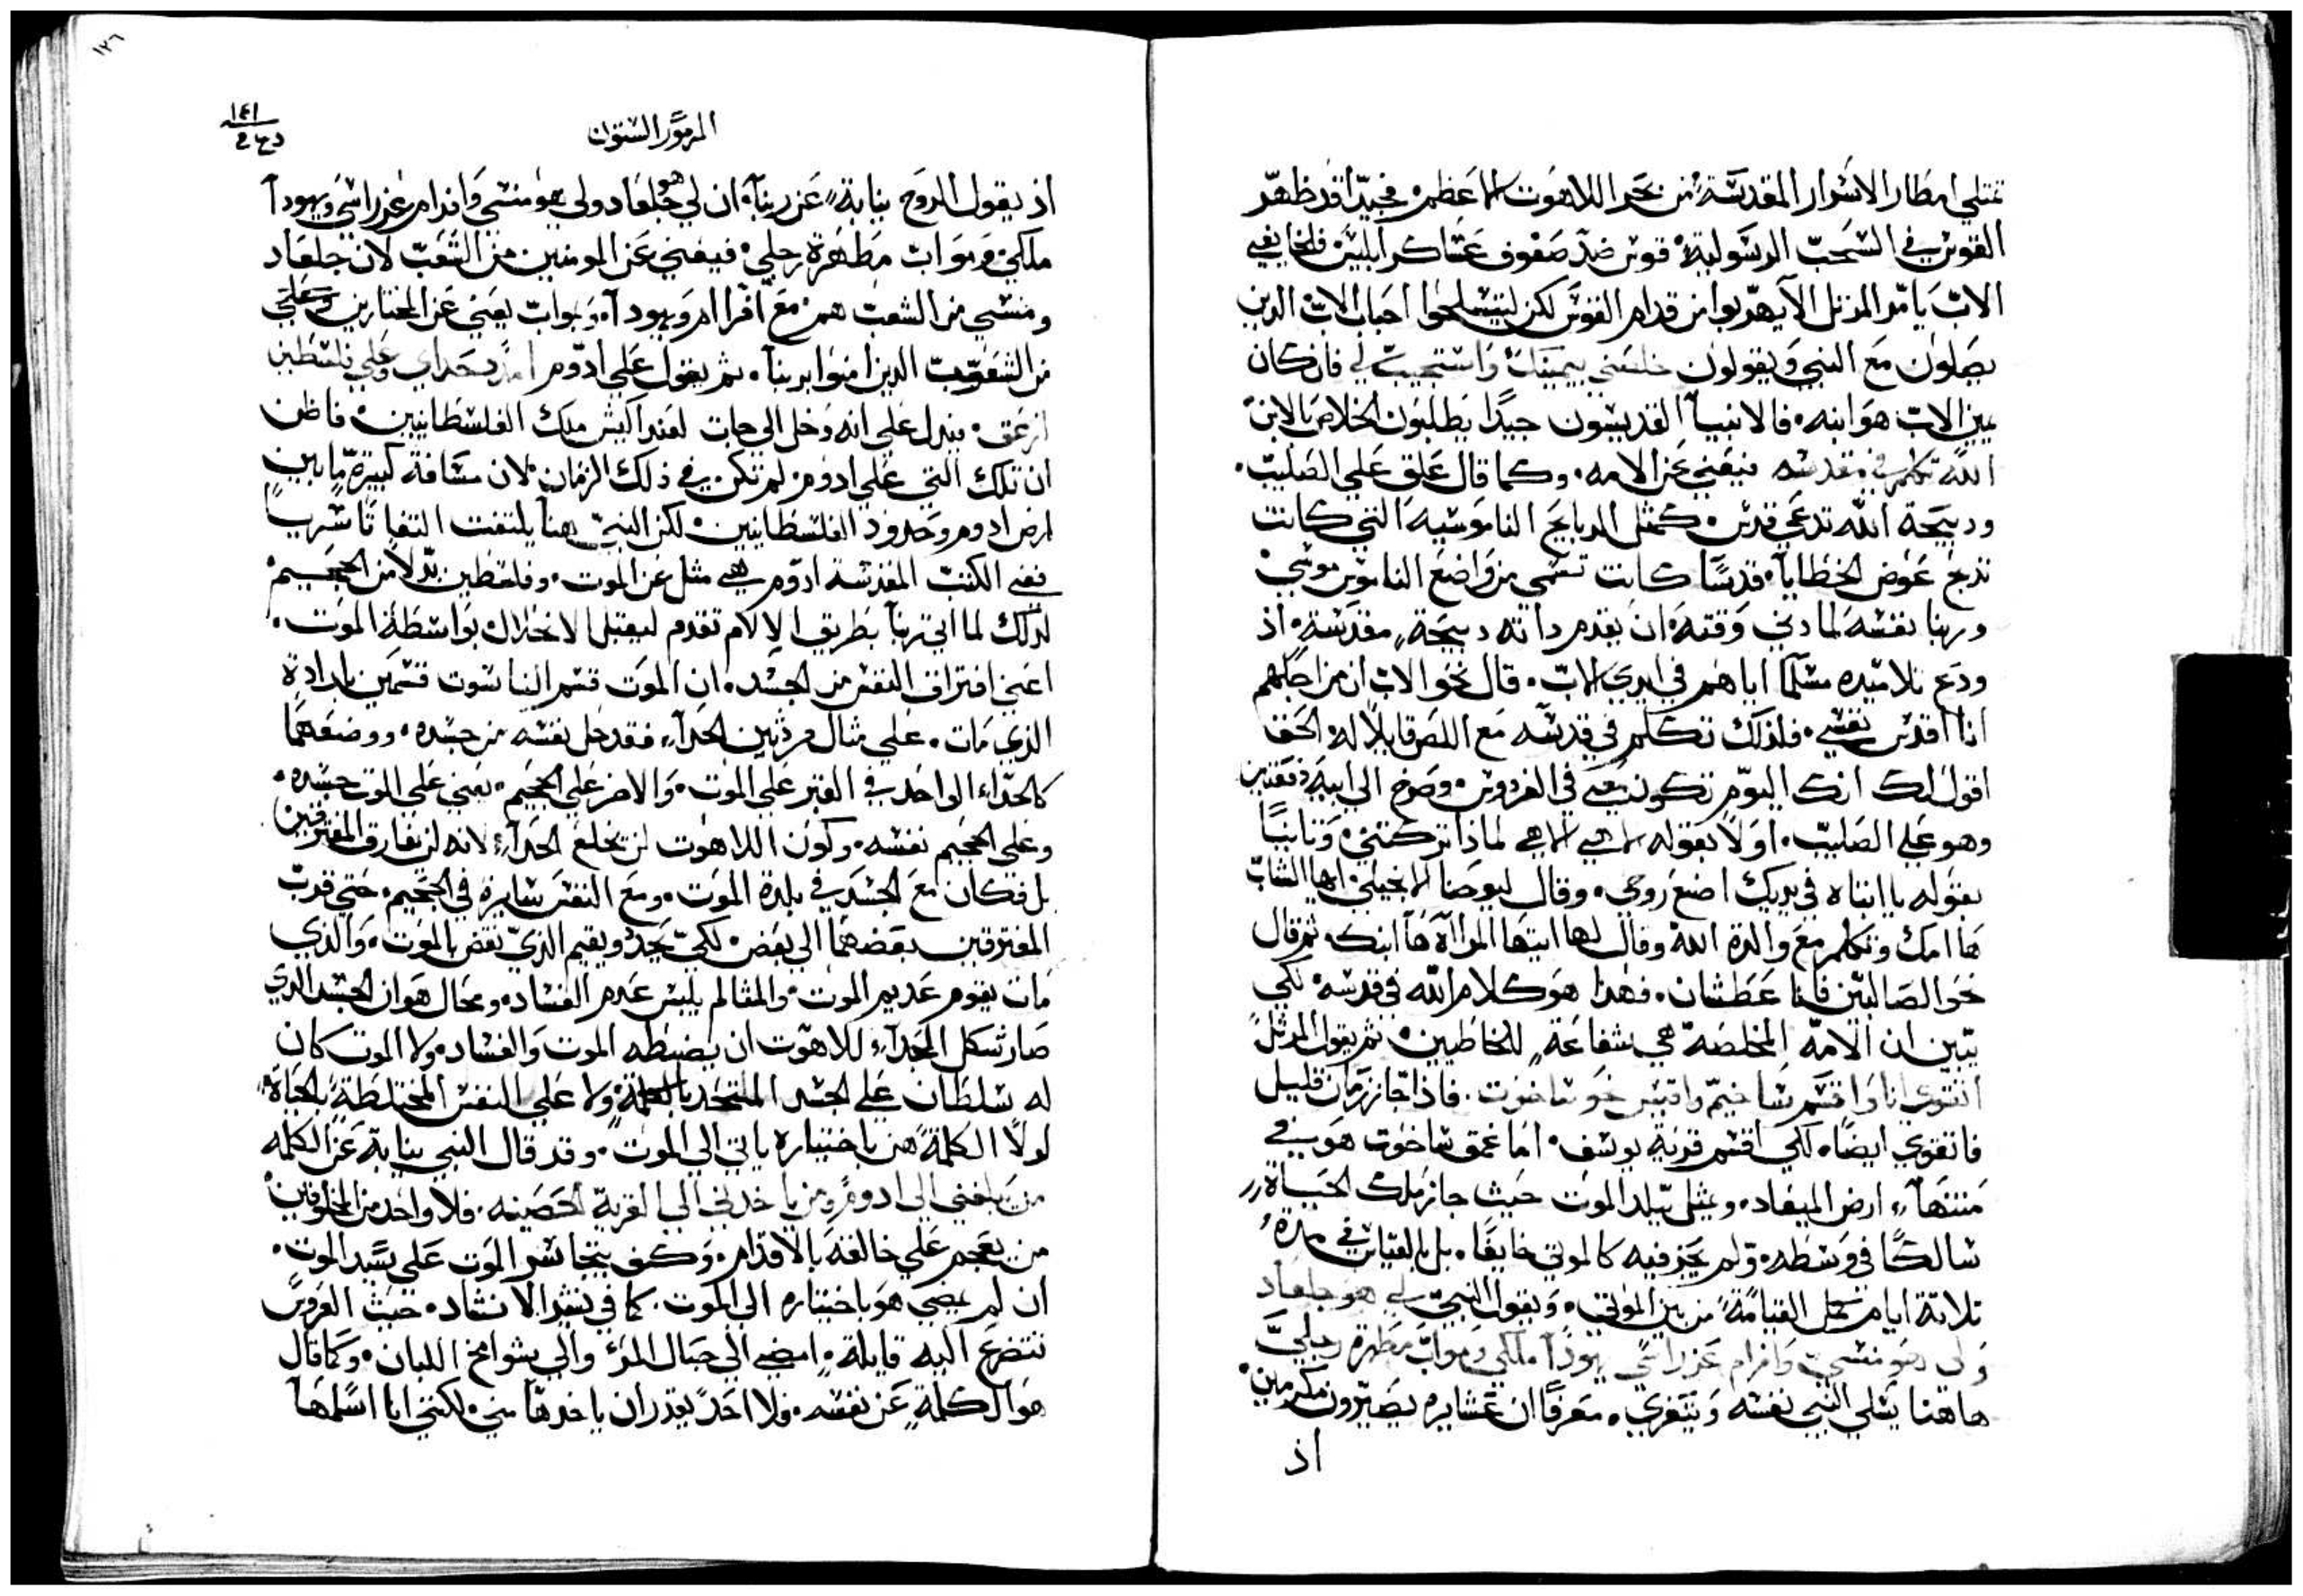 تمتلي امطار الاسرار المقدسة من بحر اللاهوت الاعظم فجيدًا قد ظهر
القوس في السحب الرسولية قوس ضد صفوف عساكر ابليس فلخايفي
الاب يامر المرتل الا يهربوا من قدام القوس لكن ليتسلحوا احباب الاب الذين
يصلون مع النبي ويقولون خلصني بيمينك واستجيب لي فان كان
يمين الاب هو ابنه فالانبيا القديسون جيدًا يطلبون الخلاص بالابن
الله تكلم في قدسه فيعني عن الامه وكما قال علق علي الصليب
ودبيحة الله تدعي قدس كمثل الدبايح الناموسيه التي كانت
تدبح عوض الخطايا قدسًا كانت تسمي من واضع الناموس موسي
وربنا نفسه لما دني وقته ان يقدم داته دبيحة مقدسة اذ
ودع تلاميده مسلمًا اياهم في ايدي الاب قال نحو الاب ان من اجلهم
انا اقدس نفسي فلذلك تكلم في قدسه مع اللص قايلًا له الحق
اقول لك انك اليوم تكون معي في الفردوس وصرخ الي ابيه دفعتين
وهو علي الصليب اولًا بقوله الاهي الاهي لماذا تركتني وثانيًا
بقوله يا ابتاه في يديك اضع روحي وقال ليوحنا الانجيلي ايها الشاب
ها امك وتكلم مع والدة الله وقال لها ايتها المراة ها ابنك ثم قال
نحو الصالبين فانا عطشان فهذا هو كلام الله في قدسه لكي
يتبين ان الامه المخلصة هي شفاعة للخاطيين ثم يقول المرتل
اتقوي انا واقسم شاخيم واقيس غور ساخوت فاذا جاز زمان قليل
فاتقوي ايضًا لكي اقسم قرية يوسف اما عمق ساخوت هو في
منتها ارض الميعاد ويمثل بلد الموت حيث جاز ملك الحياة
سالكًا في وسطه ولم يجز فيه كالموتي خايفًا بل بالقياس في مدة
تلاتة ايام تكمل القيامة من بين الموتي ويقول النبي لي هو جلعاد
ولي هو منسي وافرام عز راسي يهودا ملكي وموآب مطهرة رجلي
هاهنا يسلي النبي نفسه ويتعزي معرفًا ان عشايره يصيرون مكرمين
اذ
١٢٦
١٤١
المزمور الستون
اذ يقول الروح بنيابة عن ربنا ان لي هو جلعاد ولي هو منسي وافرام عز راسي ويهودا
ملكي وموآب مطهرة رجلي فيعني عن المومنين من الشعب لان جلعاد
ومنسي من الشعب هم مع افرام ويهودا وموآب يعني عن المختارين
من الشعوب الدين امنوا بربنا ثم يقول علي ادوم امد حداي وعلي فلسطين
ازعق فيدل علي انه دخل الي جات لعند اكيش ملك الفلسطانيين فاظن
ان تلك التي علي ادوم لم تكن في ذلك الزمان لان مسافة كبيرة ما بين
ارض ادوم وحدود الفلسطانيين لكن النبي هنا يلتفت التفاتًا سريًا
ففي الكتب المقدسة ادوم هي مثل عن الموت وفلسطين بدلًا من الجحيم
لذلك لما اتي ربنا بطريق الالام تقدم ليقتبل الانحلال بواسطة الموت
اعني افتراق النفس من الجسد ان الموت قسم الناسوت قسمين بارادة
الذي مات علي مثال فردتين الحدا فقد حل نفسه من جسده ووضعهما
كالحداء الواحد في القبر علي الموت والاخر علي الجحيم يعني علي الموت جسده
وعلي الجحيم نفسه وكون اللاهوت لن يخلع الحدا لانه لن يفارق المفترقين
بل فكان مع الجسد في بلدة الموت ومع النفس سايرة في الجحيم حتي قرب
المفترقين بعضهما الي بعض لكي يجدد ويقيم الذي نقض بالموت والذي
مات يقوم عديم الموت والمتالم يلبس عدم الفساد ومحال هو ان الجسد الذي
صار شكل الحدا للاهوت ان يضبطه الموت والفساد ولا الموت كان
له سلطان علي الجسد المتحد بالكلمة ولا علي النفس المختلطة بالحياة
لولا الكلمة من باختياره ياتي الي الموت وقد قال النبي بنيابة عن الكلمه
من يبلغني الي ادوم ومن ياخدني الي القرية الحصينه فلا واحد من المخلوقين
من يهجم علي خالقه بالاقدام وكيف يتجاسر الموت علي سيد الموت
ان لم يمضي هو باختياره الي الموت كما في نشيد الانشاد حيث العروس
تتضرع اليه قايلة امضي الي جبال المر والي شوامخ اللبان وكما قال
هو الكلمة عن نفسه ولا احد يقدر ان ياخدها مني لكنني انا اسلمها